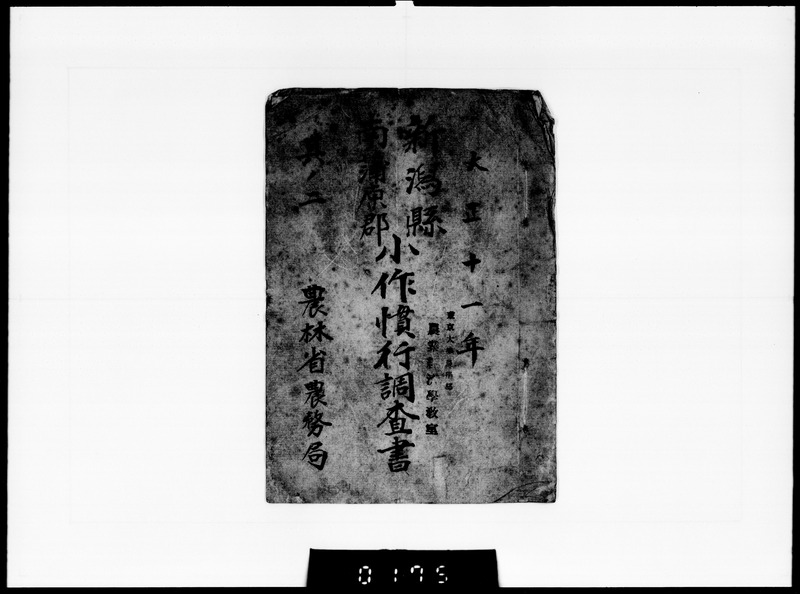 大正十一年
東京大學農學部
農業經濟學教室
新潟縣
南蒲原郡
小作慣行調査書
其ノ二
農林省農務局
0175